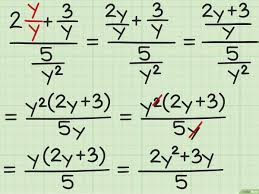 2 y/y + 3/y / 5/y² = 2y/y + 3/y / 5/y² = 2y+3/y / 5/y²
= y²(2y+3) / 5y = y²(2y+3) / 5y
= y(2y+3) / 5 = 2y²+3y / 5